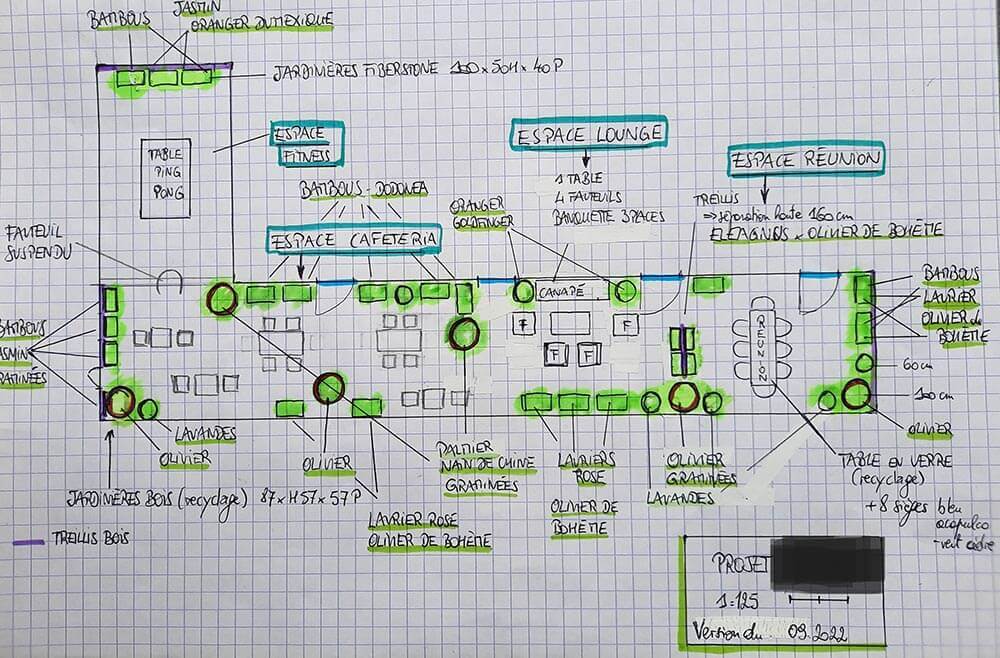 BAMBOUS
JASMIN
ORANGER DU MEXIQUE
JARDINIÈRES FIBERSTONE 100 x 50H x 40P
TABLE
PING
PONG
ESPACE
FITNESS
FAUTEUIL
SUSPENDU
BAMBOUS - DODONEA
ESPACE CAFETERIA
ESPACE LOUNGE
1 TABLE
4 FAUTEUILS
BANQUETTE 3PLACES
ORANGER
GOLDFINGER
ESPACE RÉUNION
TREILLIS
⇒ séparation haute 160 cm
ELEAGNUS x OLIVIER DE BOHÈME
CANAPÉ
F
F
F
F
RÉUNION
BAMBOUS
LAURIER
OLIVIER de
BOHÈME
60 cm
100 cm
OLIVIER
BAMBOUS
JASMIN
GRAMINÉES
LAVANDES
OLIVIER
OLIVIER
PALMIER
NAIN DE CHINE
GRAMINÉES
LAURIERS
ROSE
OLIVIER DE
BOHÈME
OLIVIER
GRAMINÉES
LAVANDES
TABLE EN VERRE
(recyclage)
+ 8 sièges bleu
acapulco
- vert cèdre
JARDINIÈRES BOIS (recyclage) 87 x H57 x 57P
LAURIER ROSE
OLIVIER DE BOHÈME
TREILLIS BOIS
PROJET
1=125
Version du 09.2022